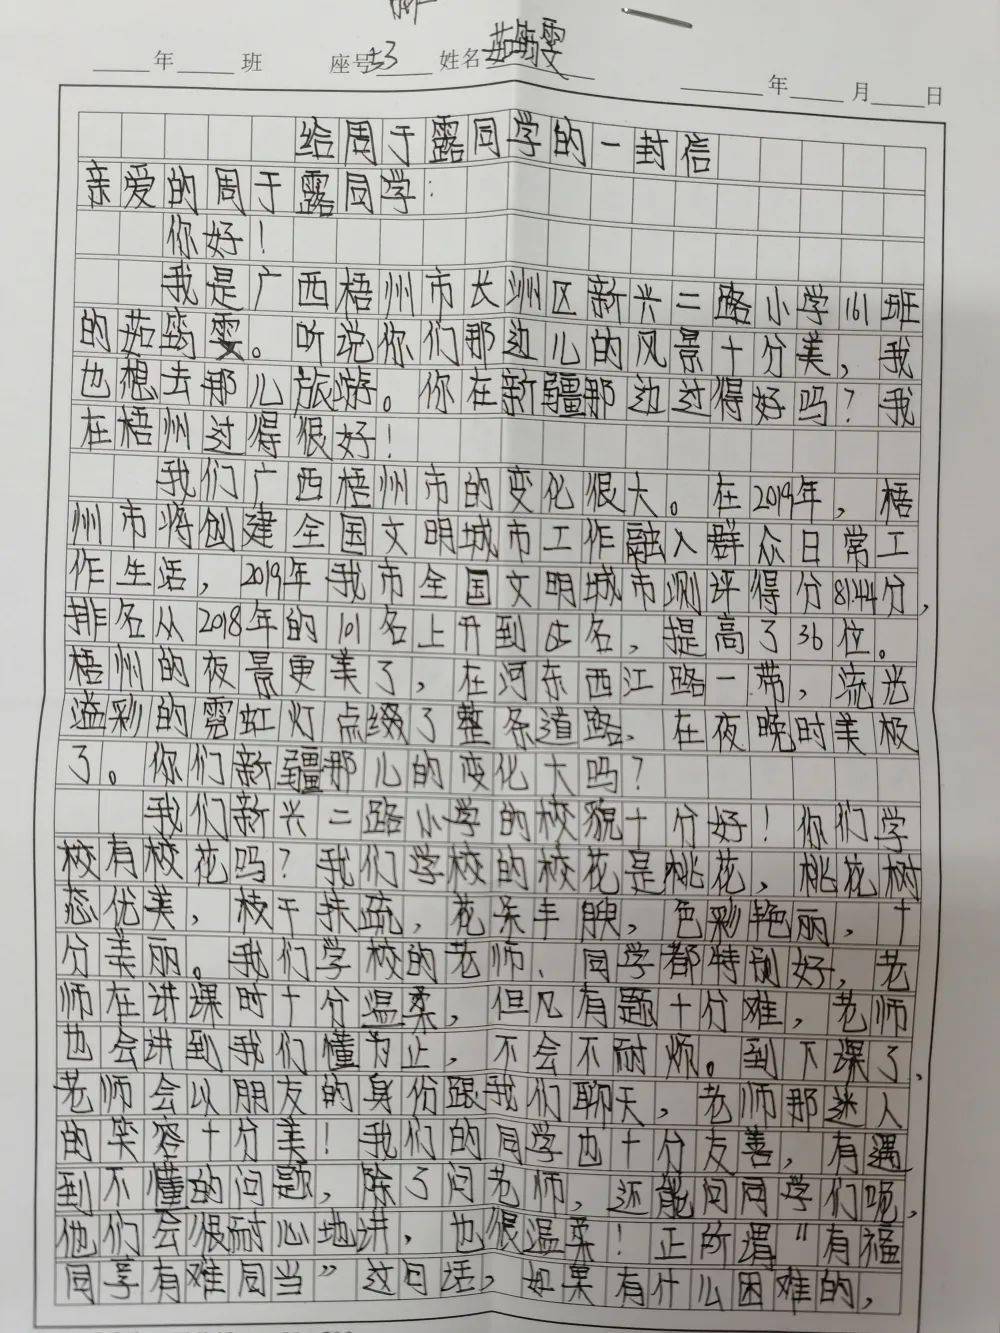 年 班 座号 33 姓名 茹筠雯 年 月 日
给周于露同学的一封信
亲爱的周于露同学:
你好!
我是广西梧州市长洲区新兴二路小学161班
的茹筠雯。听说你们那边儿的风景十分美,我
也想去那儿旅游。你在新疆那边过得好吗?我
在梧州过得很好!
我们广西梧州市的变化很大。在2019年,梧
州市将创建全国文明城市工作融入群众日常工
作生活,2019年我市全国文明城市测评得分81.44分,
排名从2018年的101名上升到65名,提高了36位。
梧州的夜景更美了,在河东西江路一带,流光
溢彩的霓虹灯点缀了整条道路、在夜晚时美极
了。你们新疆那儿的变化大吗?
我们新兴二路小学的校貌十分好!你们学
校有校花吗?我们学校的校花是桃花,桃花树
态优美,枝干扶疏,花朵丰腴,色彩艳丽,十
分美丽。我们学校的老师、同学都特别好,老
师在讲课时十分温柔,但凡有题十分难,老师
也会讲到我们懂为止,不会不耐烦。到下课了,
老师会以朋友的身份跟我们聊天,老师那迷人
的笑容十分美!我们的同学也十分友善,有遇
到不懂的问题,除了问老师,还能问同学们呢,
他们会很耐心地讲,也很温柔!正所谓“有福
同享有难同当”这句话,如果有什么困难的,